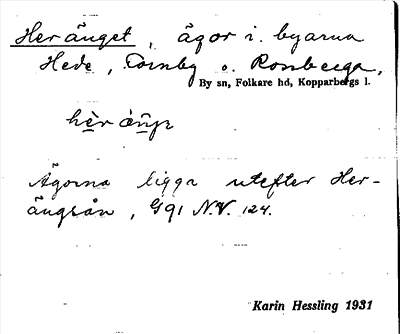 Heränget, ägor i byarna
Hede, Tomby o. Rossberga,
By sn, Folkare hd, Kopparbergs l.
Ägorna ligga utefter Her-
ängsån, G91 N.V. 124.
Karin Hessling 1931